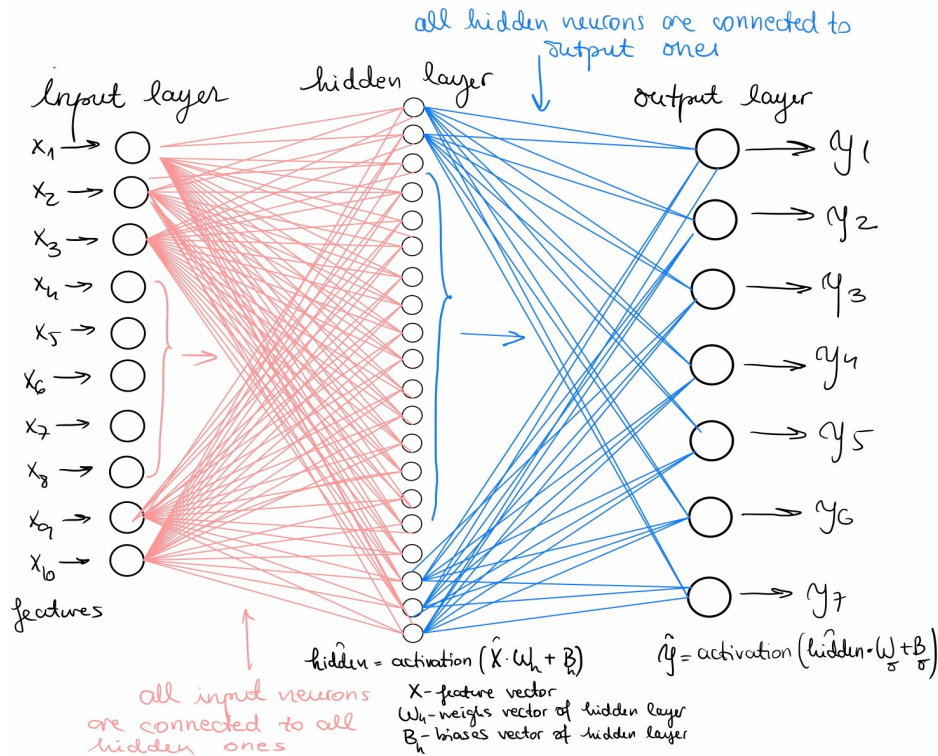 all hidden neurons are connected to
output ones
Input layer
hidden layer
output layer
x1
x2
x3
x4
x5
x6
x7
x8
x9
x10
features
y1
y2
y3
y4
y5
y6
y7
hidden = activation (X · Wh + Bh)
X - feature vector
Wh - weighs vector of hidden layer
Bh - biases vector of hidden layer
ŷ = activation (hidden · Wo + Bo)
all input neurons
are connected to all
hidden ones